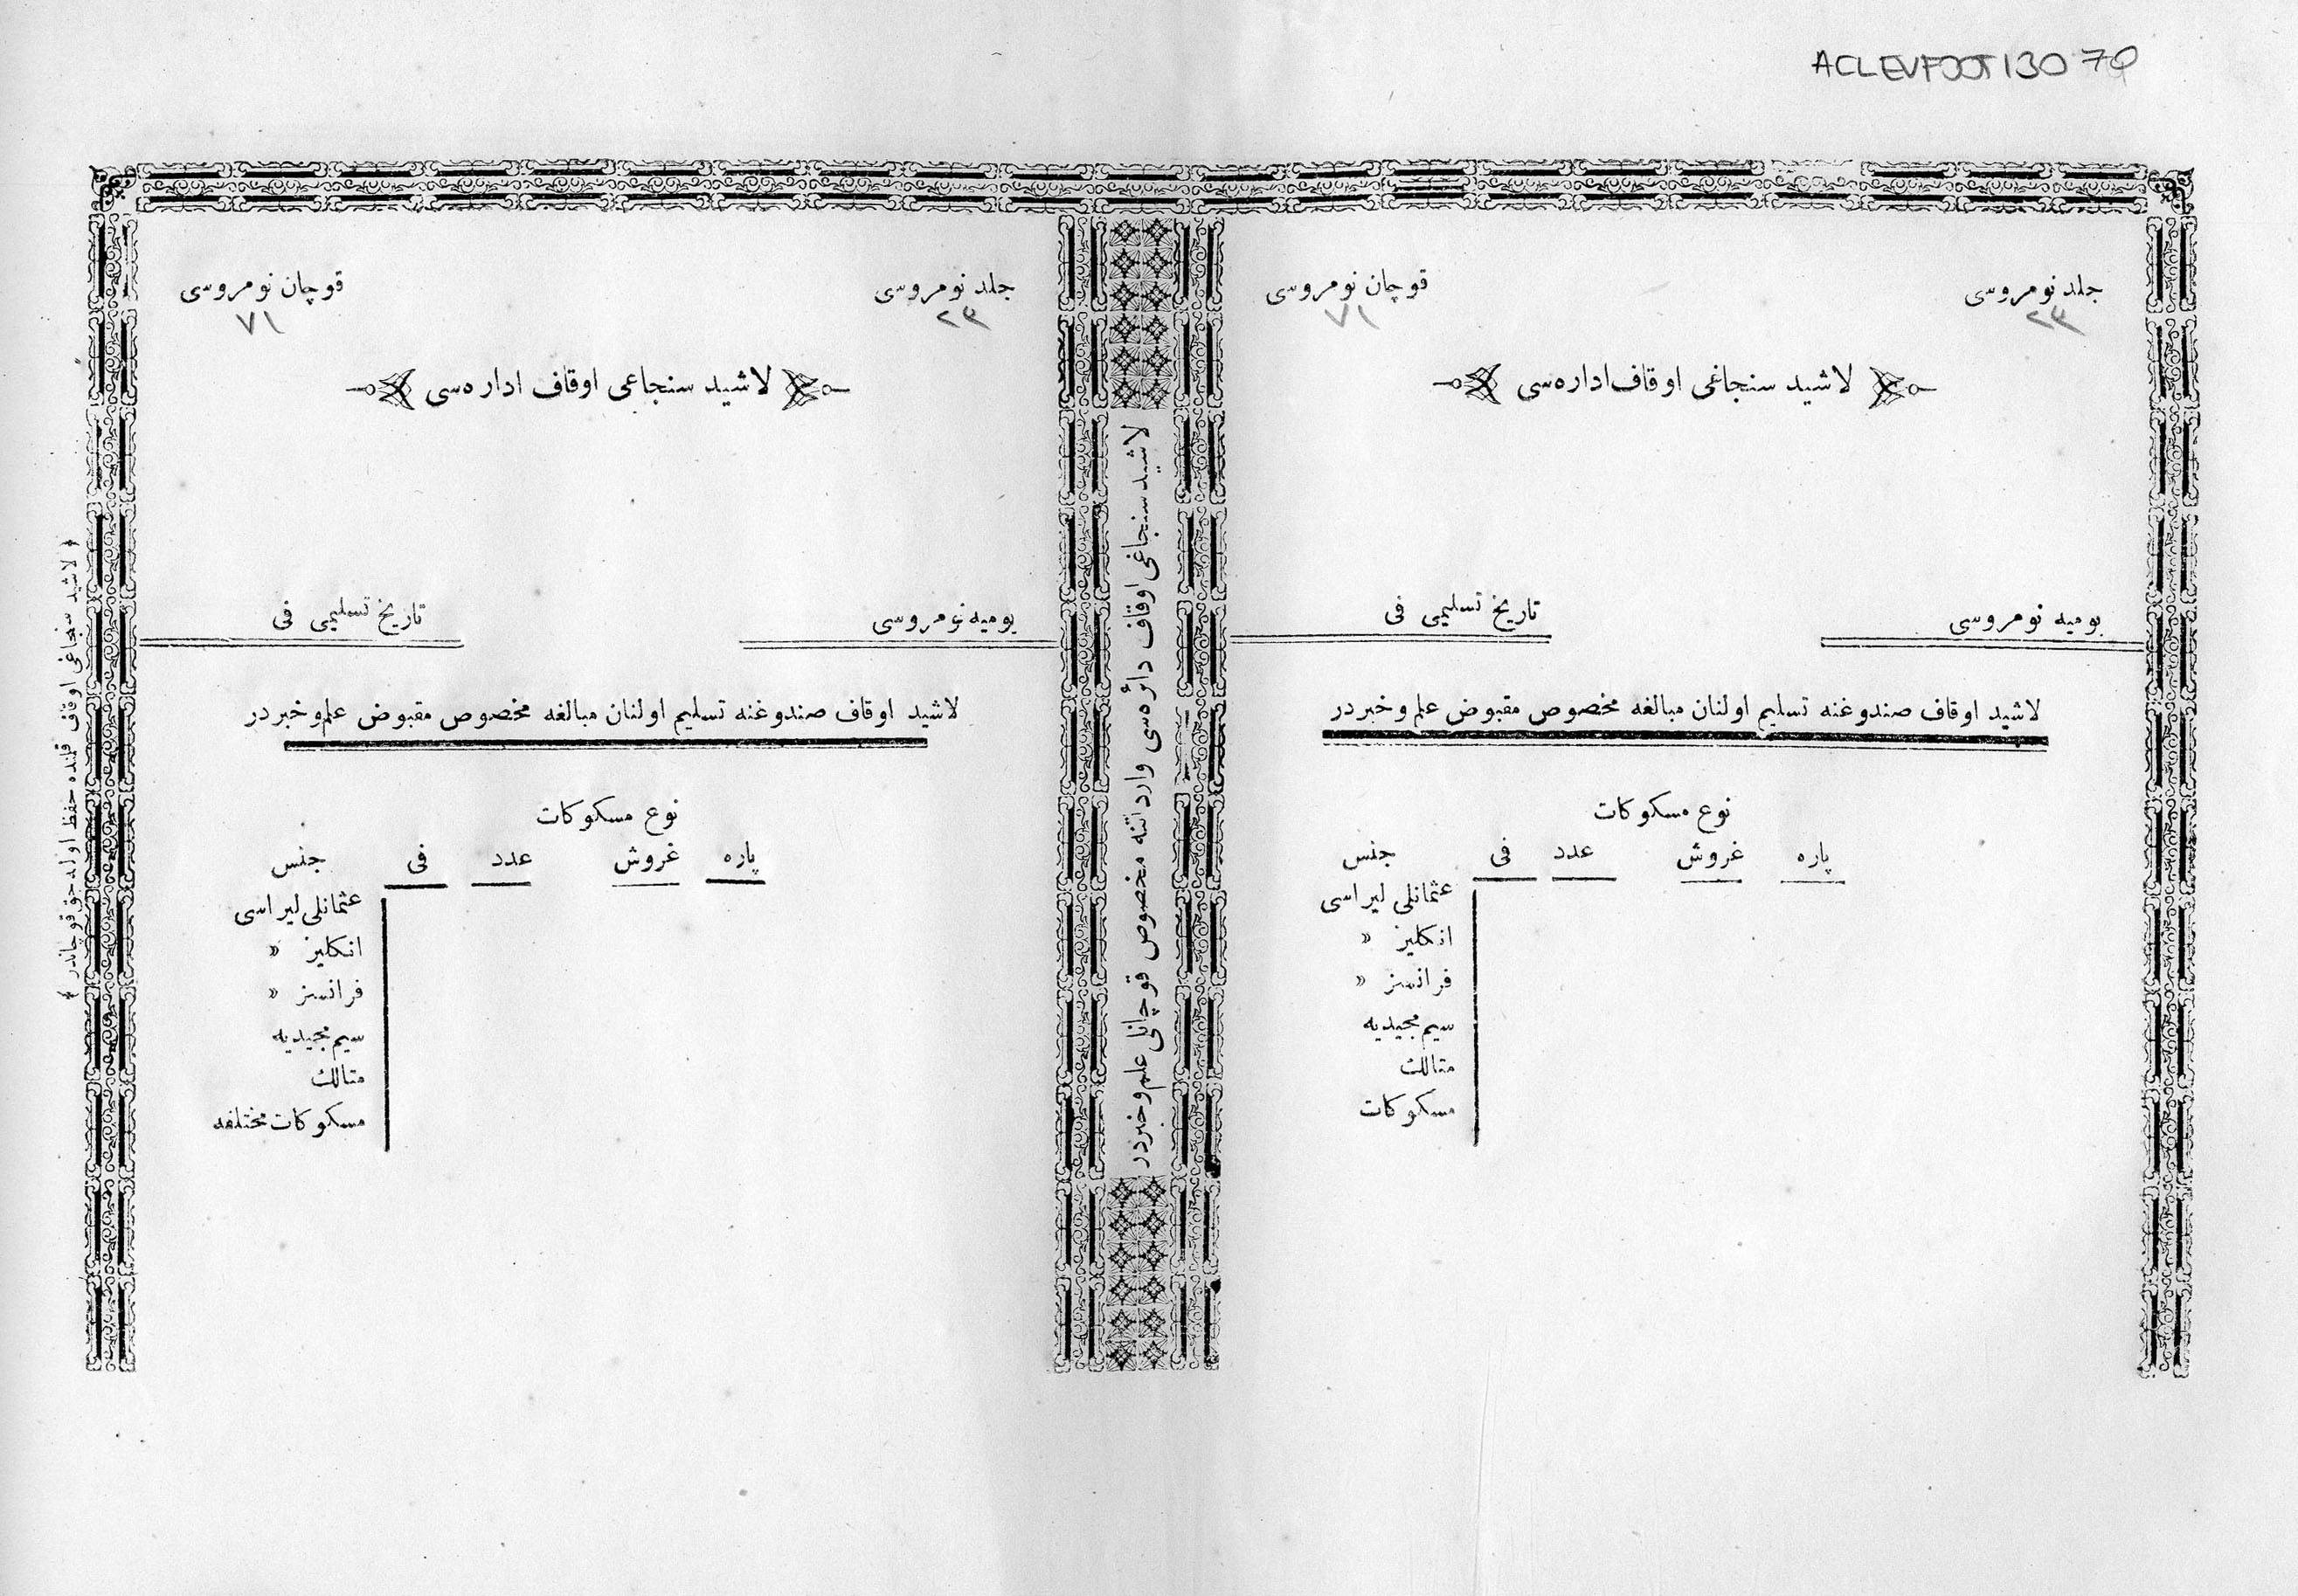 ACLEVFOOT13070
جلد نومروسی
٢٣
قوچان نومروسی
٧١
لاشيد سنجاغی اوقاف اداره‌سی
يوميه نومروسی
تاريخ تسليمی فی
لاشيد اوقاف صندوغنه تسليم اولنان مبالغه مخصوص مقبوض علم و خبردر
نوع مسكوكات
پاره غروش عدد فی جنس
عثمانلی ليراسی
انكليز »
فرانسز »
سيم مجيديه
متالك
مسكوكات
لاشيد سنجاغی اوقاف دائره‌سی وارداتنه مخصوص قوچانلی علم و خبردر
جلد نومروسی
٢٣
قوچان نومروسی
٧١
لاشيد سنجاغی اوقاف اداره‌سی
يوميه نومروسی
تاريخ تسليمی فی
لاشيد اوقاف صندوغنه تسليم اولنان مبالغه مخصوص مقبوض علم و خبردر
نوع مسكوكات
پاره غروش عدد فی جنس
عثمانلی ليراسی
انكليز »
فرانسز »
سيم مجيديه
متالك
مسكوكات مختلفه
﴿ لاشيد سنجاغی اوقاف قلمنده حفظ اولنه‌جق قوچاندر ﴾